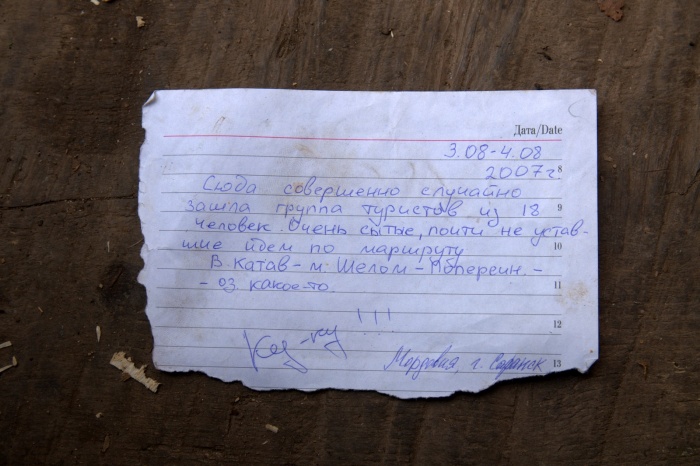 Дата/Date
3.08-4.08
2007г. 8
Сюда совершенно случайно
зашла группа туристов из 18 9
человек. Очень сытые, почти не устав-
шие идем по маршруту 10
В. Катав - м. Шелом -
- оз какое-то. 11
!!! 12
Ку-ку
Мордовия, г. Саранск 13